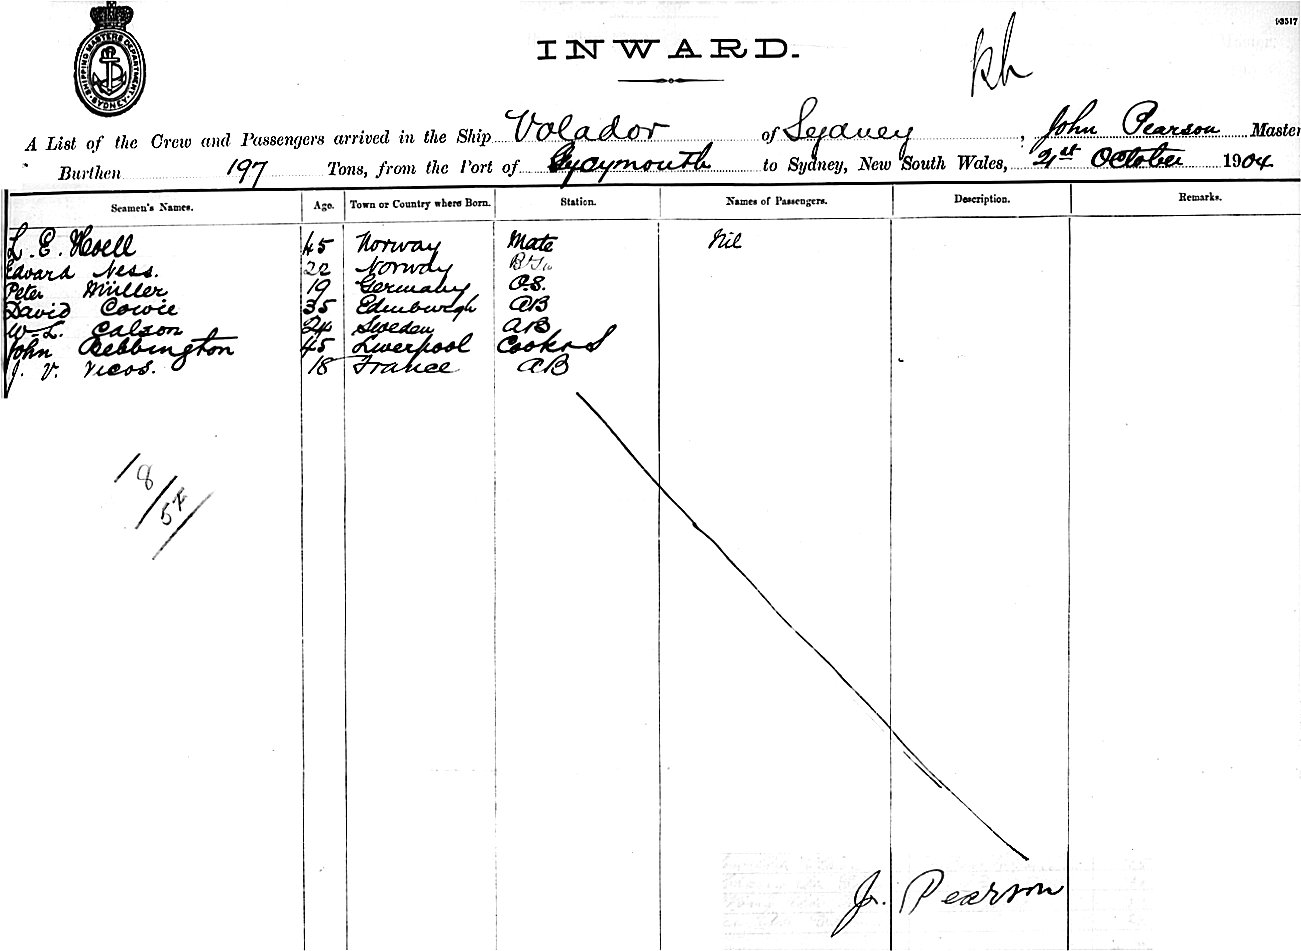 93517
SHIPPING MASTERS DEPARTMENT SYDNEY
INWARD.
A List of the Crew and Passengers arrived in the Ship Volador of Sydney, John Pearson Master
Burthen 197 Tons, from the Port of to Sydney, New South Wales, 21st October 1904
Seamen's Names. Age. Town or Country where Born. Station. Names of Passengers. Description. Remarks.
L. E. Hoell 45 Norway Mate Nil
Edward Ness. 22 Norway
Peter Müller 19 Germany O.S.
David Cowie 35 Edinburgh AB
W. L. Calson 24 Sweden AB
John Bebbington 45 Liverpool Cook & S
J. V. Vicos. 18 France AB
18/
54/
J. Pearson